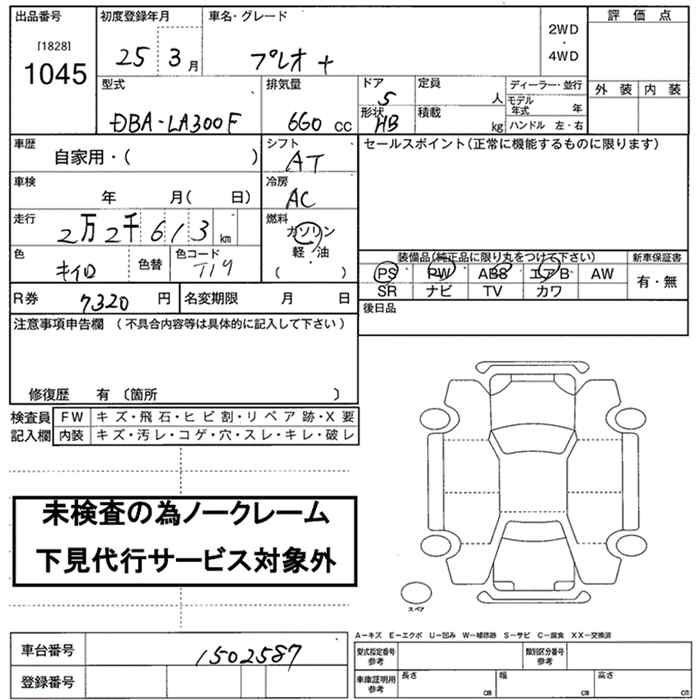 出品番号 初度登録年月 車名・グレード 2WD・4WD 評価点
[1828]
1045 25 3月 プレオ+
外装 内装
型式 排気量 ドア 定員 ディーラー・並行
DBA-LA300F 660 cc 5 人 モデル年式 年
形状 HB 積載 kg ハンドル 左・右
車歴 シフト セールスポイント(正常に機能するものに限ります)
自家用・( ) AT
車検 冷房
年 月( 日) AC
走行 燃料
2万2千613km ガソリン
軽・油
( )
色 色替 色コード 装備品(純正品に限り丸をつけて下さい) 新車保証書
キイロ T19 PS PW ABS エアB AW 有・無
SR ナビ TV カワ
R券 7320円 名変期限 月 日 後日品
注意事項申告欄 (不具合内容等は具体的に記入して下さい)
修復歴 有 〔箇所 〕
検査員 FW キズ・飛石・ヒビ割・リペア跡・X要
記入欄 内装 キズ・汚レ・コゲ・穴・スレ・キレ・破レ
未検査の為ノークレーム
下見代行サービス対象外
スペア
A-キズ E-エクボ U-凹み W-補修跡 S-サビ C-腐食 XX-交換済
車台番号 1502587 型式指定番号 参考 類別区分番号 参考
登録番号 車庫証明用 参考 長さ cm 幅 cm 高さ cm